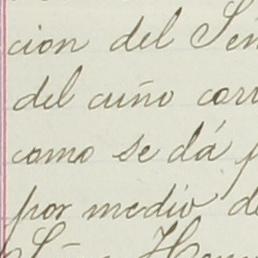 cion del Señ
del cuño corr
como se dá p
por medio de